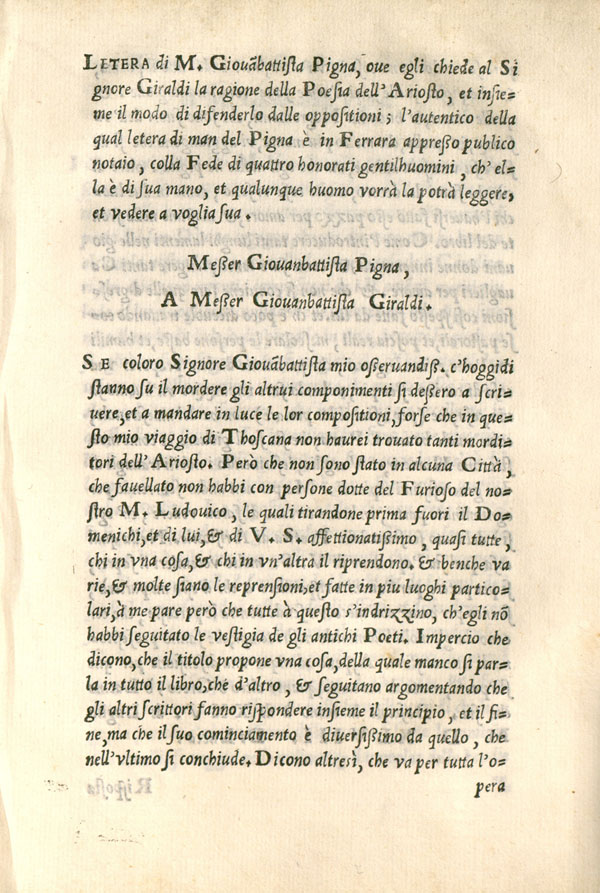 LETERA di M. Giouãbattista Pigna, oue egli chiede al Si
gnore Giraldi la ragione della Poesia dell'Ariosto, et insie=
me il modo di difenderlo dalle oppositioni; l'autentico della
qual letera di man del Pigna è in Ferrara appreßo publico
notaio, colla Fede di quattro honorati gentilhuomini, ch'el=
la è di sua mano, et qualunque huomo vorrà la potrà leggere,
et vedere a voglia sua.
Meßer Giouanbattista Pigna,
A Meßer Giouanbattista Giraldi.
SE coloro Signore Giouãbattista mio oßeruandiß. c'hoggidi
stanno su il mordere gli altrui componimenti si deßero a scri=
uere, et a mandare in luce le lor compositioni, forse che in que=
sto mio viaggio di Thoscana non haurei trouato tanti mordi=
tori dell'Ariosto. Però che non sono stato in alcuna Città,
che fauellato non habbi con persone dotte del Furioso del no=
stro M. Ludouico, le quali tirandone prima fuori il Do=
menichi, et di lui, & di V. S. affettionatissimo, quasi tutte,
chi in vna cosa, & chi in vn'altra il riprendono. & benche va
rie, & molte siano le reprensioni, et fatte in piu luoghi partico=
lari, à me pare però che tutte à questo s'indrizzino, ch'egli nõ
habbi seguitato le vestigia de gli antichi Poeti. Impercio che
dicono, che il titolo propone vna cosa, della quale manco si par=
la in tutto il libro, che d'altro, & seguitano argomentando che
gli altri scrittori fanno rispondere insieme il principio, et il fi=
ne, ma che il suo cominciamento è diuersißimo da quello, che
nell'vltimo si conchiude. Dicono altresì, che va per tutta l'o=
pera